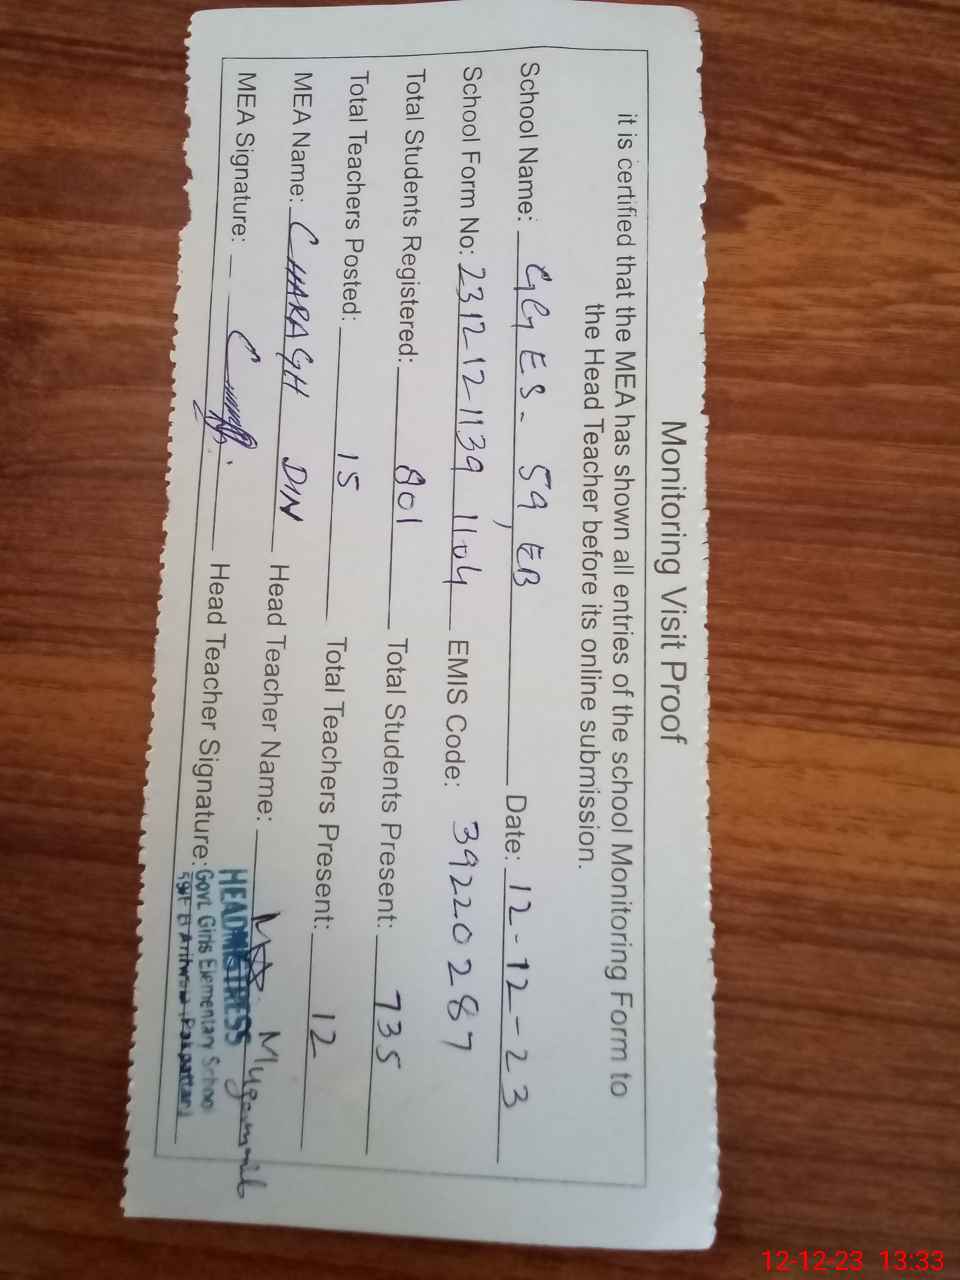 Monitoring Visit Proof
it is certified that the MEA has shown all entries of the school Monitoring Form to
the Head Teacher before its online submission.
School Name: GGES- 59, EB Date: 12-12-23
School Form No: 23121211391104 EMIS Code: 39220287
Total Students Registered: 801 Total Students Present: 735
Total Teachers Posted: 15 Total Teachers Present: 12
MEA Name: CHARAGH DIN Head Teacher Name:
MEA Signature: Head Teacher Signature:
HEADMISTRESS
Govt. Girls Elementary School
59/E B Arifwala, Pakpattan
12-12-23 13:33